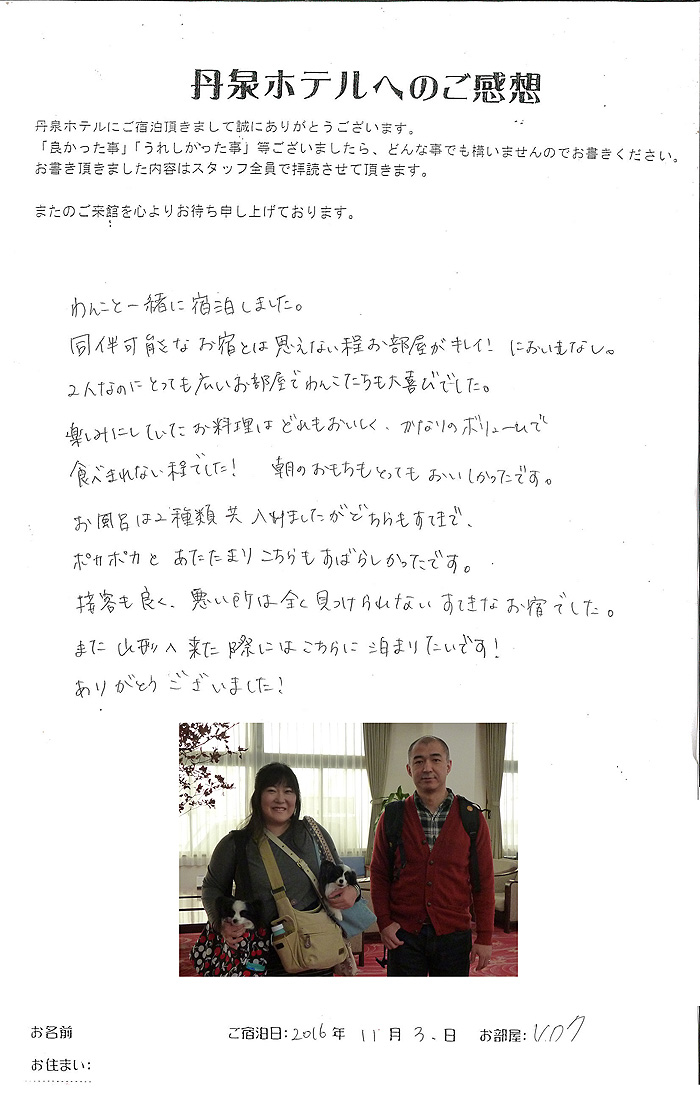 丹泉ホテルへのご感想
丹泉ホテルにご宿泊頂きまして誠にありがとうございます。
「良かった事」「うれしかった事」等ございましたら、どんな事でも構いませんのでお書きください。
お書き頂きました内容はスタッフ全員で拝読させて頂きます。
またのご来館を心よりお待ち申し上げております。
わんこと一緒に宿泊しました。
同伴可能なお宿とは思えない程お部屋がキレイ! においもなし。
2人なのにとっても広いお部屋でわんこたちも大喜びでした。
楽しみにしていたお料理はどれもおいしく、かなりのボリュームで
食べきれない程でした! 朝のおもちもとってもおいしかったです。
お風呂は2種類共入りましたがどちらもすてきで、
ポカポカとあたたまりこちらもすばらしかったです。
接客も良く、悪い所は全く見つけられないすてきなお宿でした。
また山形へ来た際にはこちらに泊まりたいです!
ありがとうございました!
お名前 ご宿泊日:2016年 11月 3日 お部屋:
お住まい: